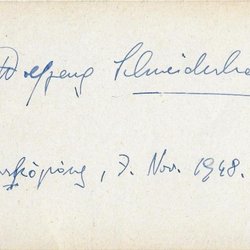 Wolfgang Schneiderha
rköping, 7. Nov. 1948.